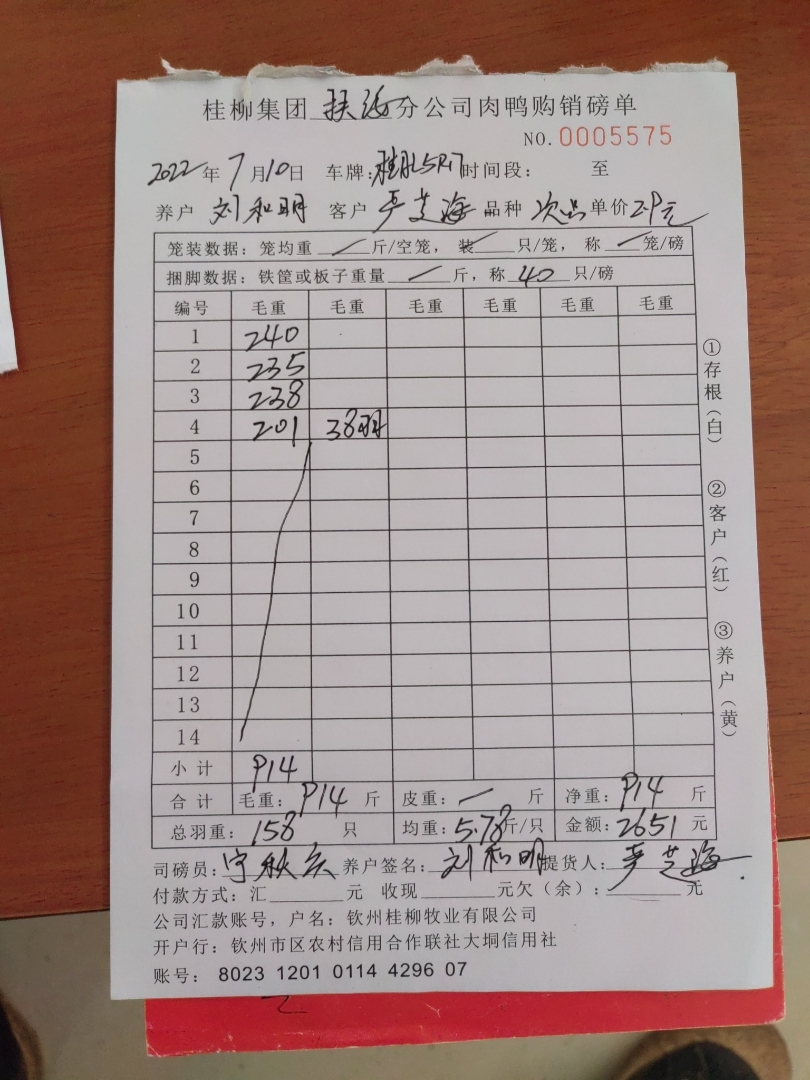 桂柳集团 扶海 分公司肉鸭购销磅单
NO.0005575
2022年7月10日 车牌: 时间段: 至
养户 刘和明 客户 严芝海 品种 次品 单价 2.9元
笼装数据: 笼均重 / 斤/空笼, 装 / 只/笼, 称 / 笼/磅
捆脚数据: 铁筐或板子重量 / 斤, 称 40 只/磅
编号 毛重 毛重 毛重 毛重 毛重 毛重
1 240
2 235
3 238
4 201 38羽
5
6
7
8
9
10
11
12
13
14
小计 914
合计 毛重: 914 斤 皮重: / 斤 净重: 914 斤
总羽重: 158 只 均重: 5.78斤/只 金额: 2651 元
司磅员: 养户签名: 刘和明 提货人: 严芝海
付款方式: 汇 元 收现 元欠(余): 元
公司汇款账号, 户名: 钦州桂柳牧业有限公司
开户行: 钦州市区农村信用合作联社大垌信用社
账号: 8023 1201 0114 4296 07
①存根(白)
②客户(红)
③养户(黄)